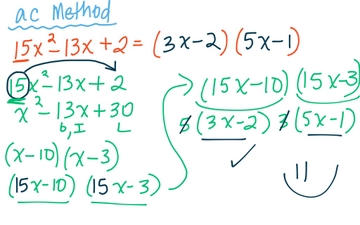 ac Method
15x² - 13x + 2 = (3x - 2) (5x - 1)
15x² - 13x + 2
x² - 13x + 30
b, I L
(x - 10) (x - 3)
(15x - 10) (15x - 3)
(15x - 10) (15x - 3)
5 (3x - 2) 3 (5x - 1)